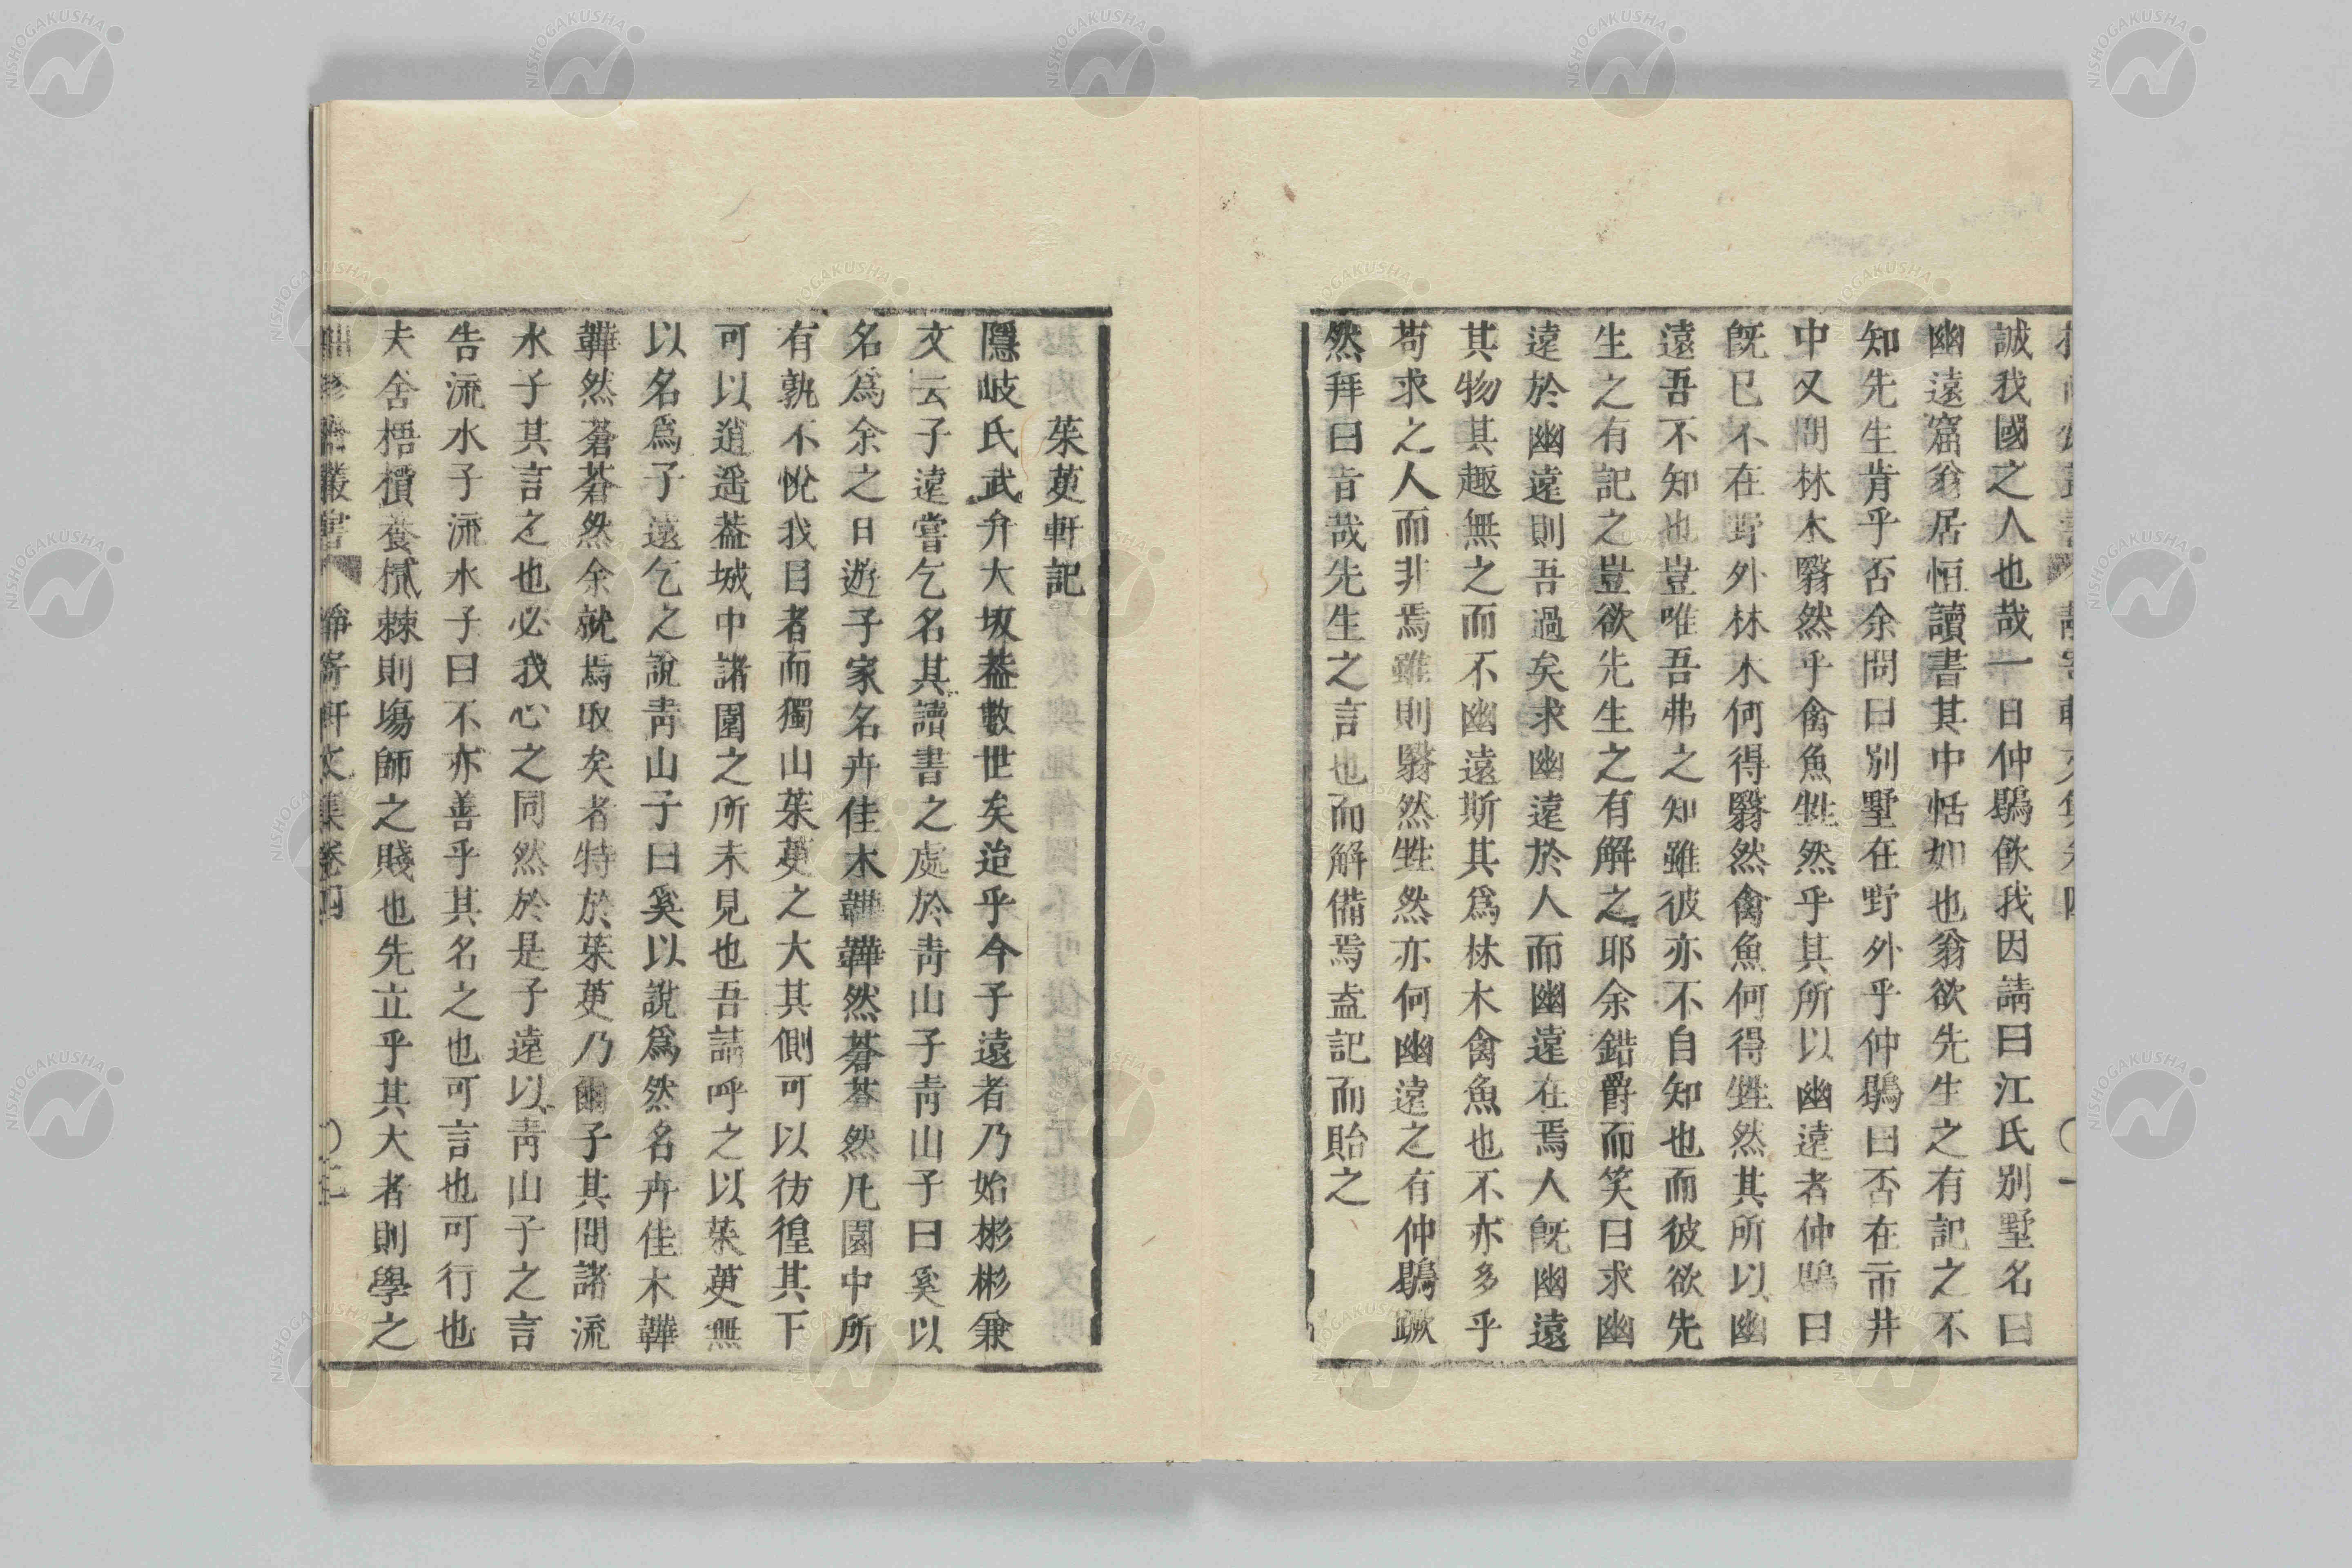 誠我國之人也哉一日仲鶡飲我因請曰江氏別墅名曰
幽遠窩翁居恒讀書其中恬如也翁欲先生之有記之不
知先生肯乎否余問曰別墅在野外乎仲鶡曰否在市井
中又問林木翳然乎禽魚甡然乎其所以幽遠者仲鶡曰
旣已不在野外林木何得翳然禽魚何得甡然其所以幽
遠吾不知也豈唯吾弗之知雖彼亦不自知也而彼欲先
生之有記之豈欲先生之有解之耶余錯爵而笑曰求幽
遠於幽遠則吾過矣求幽遠於人而幽遠在焉人旣幽遠
其物其趣無之而不幽遠斯其爲林木禽魚也不亦多乎
苟求之人而非焉雖則翳然甡然亦何幽遠之有仲鶡蹶
然拜曰旨哉先生之言也而解備焉盍記而貽之
茱萸軒記
隱岐氏武弁大坂葢數世矣迨乎今子遠者乃始彬彬兼
文云子遠嘗乞名其讀書之處於靑山子靑山子曰奚以
名爲余之日遊子家名卉佳木韡韡然蒼蒼然凡園中所
有孰不悅我目者而獨山茱萸之大其側可以彷徨其下
可以逍遥葢城中諸園之所未見也吾請呼之以茱萸無
以名爲子遠乞之說靑山子曰奚以說爲然名卉佳木韡
韡然蒼蒼然余就焉取矣者特於茱萸乃爾子其問諸流
水子其言之也必我心之同然於是子遠以靑山子之言
告流水子流水子曰不亦善乎其名之也可言也可行也
夫舍梧檟養樲棘則塲師之賤也先立乎其大者則學之
叢書 文集卷四
NISHOGAKUSHA